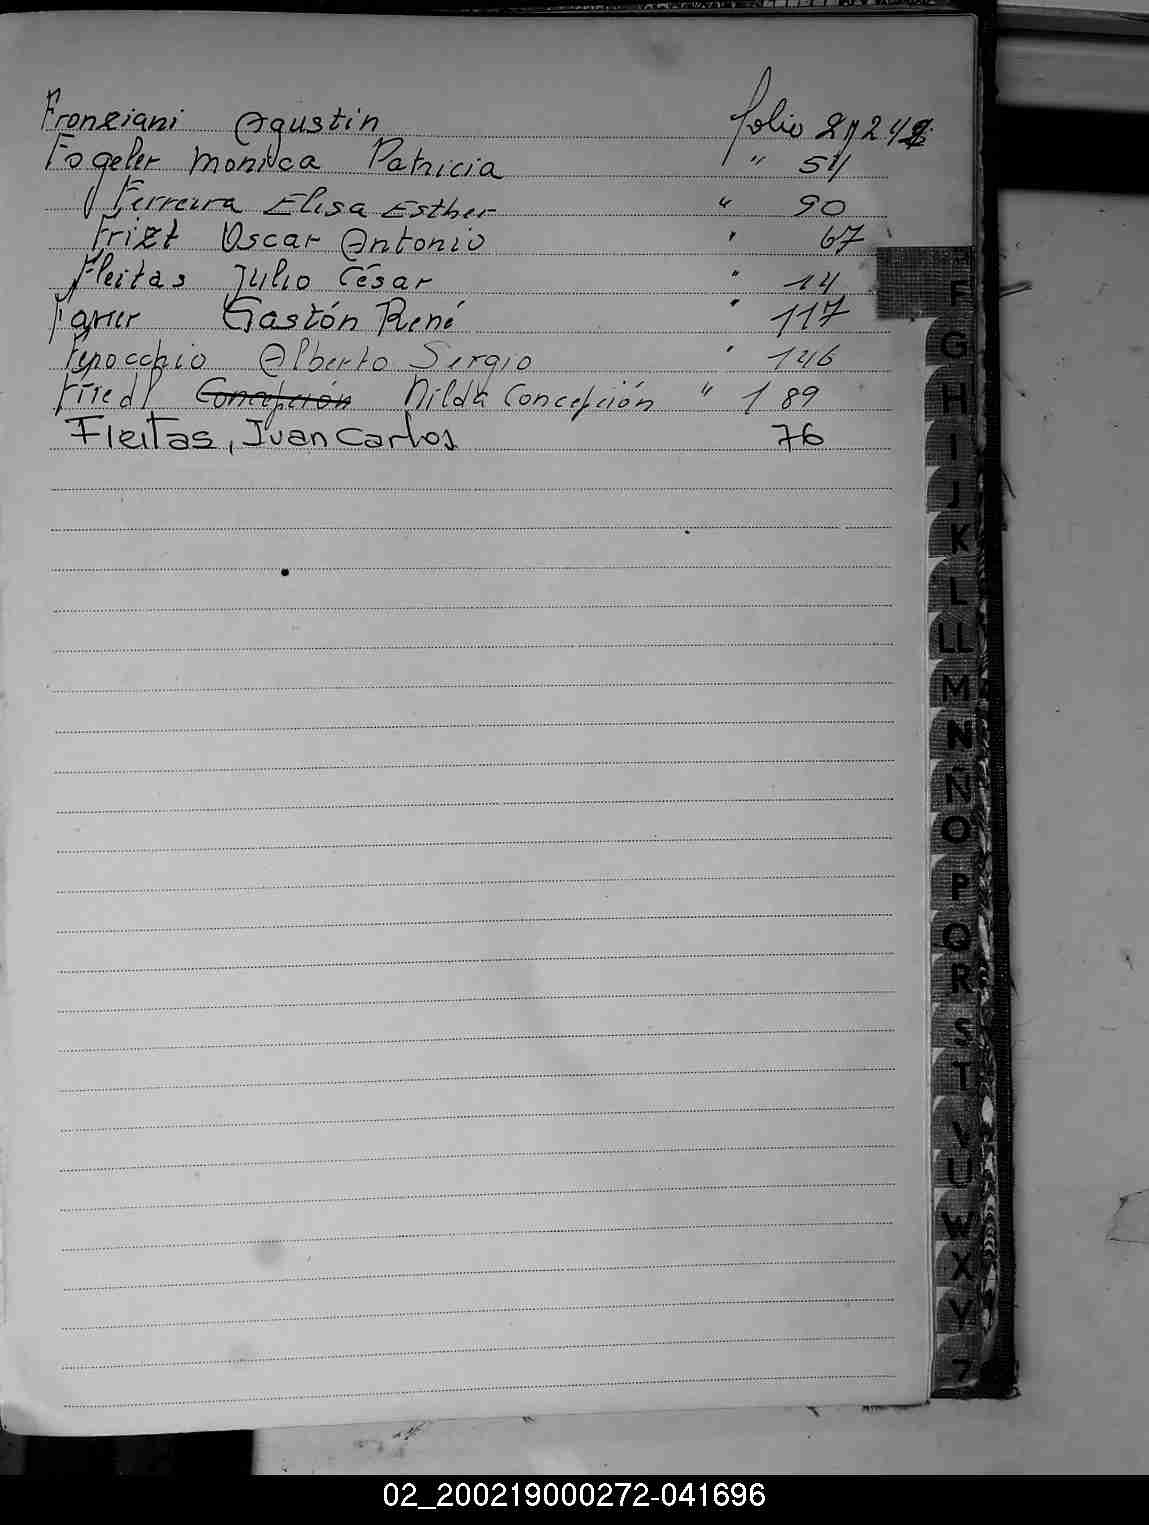 Fronziani Agustin folio 2 y 242
Fogeler Monica Patricia " 54
Ferreira Elisa Esther " 90
Frizt Oscar Antonio " 67
Fleitas Julio César " 14
Farrer Gastón René " 117
Fenocchio Alberto Sergio " 146
Friedl Concepción Nilda Concepción " 189
Fleitas, Juan Carlos 76
F
G
H
I
J
K
L
LL
M
N
Ñ
O
P
Q
R
S
T
V
U
W
X
Y
Z
02_200219000272-041696